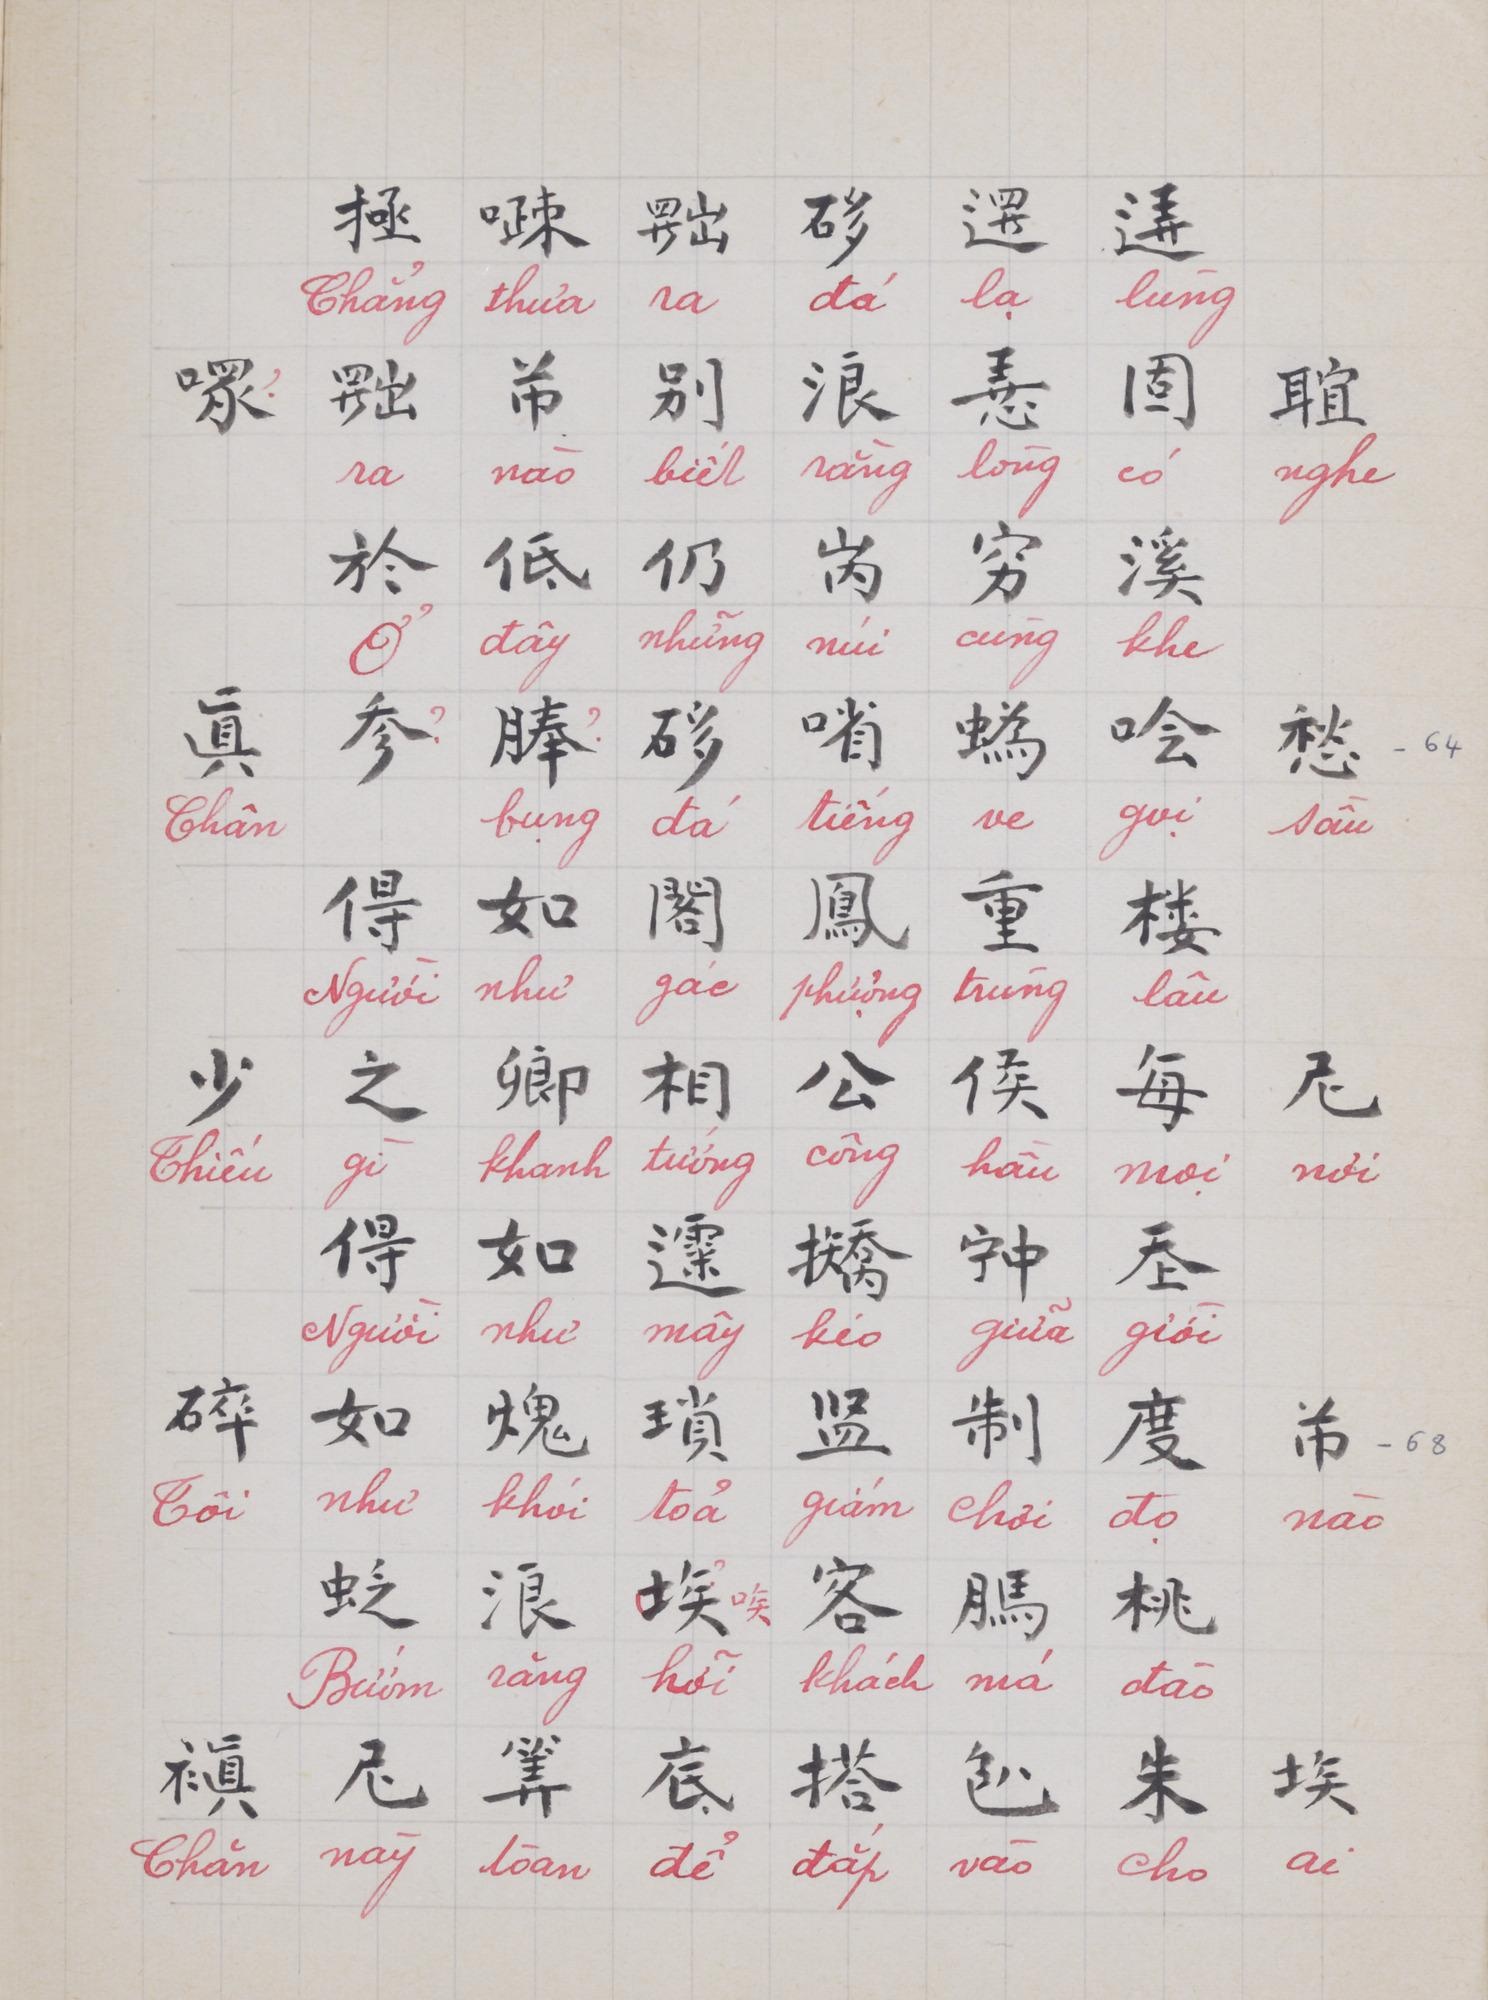 極 𠾔 𦋦 𥒥 邏 𨓡
Chẳng thưa ra đá lạ lùng
? 𦋦 芇 別 浪 𢚸 固 𦖑
ra nào biết rằng lòng có nghe
於 低 仍 𡶀 穷 溪
Ở đây những núi cùng khe
眞 ? ? 𥒥 哨 𧋃 噲 愁 - 64
Chân bụng đá tiếng ve gọi sầu
得 如 閣 鳳 重 楼
Người như gác phượng trùng lầu
少 之 卿 相 公 侯 每 尼
Thiếu gì khanh tướng công hầu mọi nơi
得 如 𩄲 撟 𡨌 𡗶
Người như mây kéo giữa giời
碎 如 塊 瑣 监 制 度 芇 - 68
Tôi như khói toả giám chơi đọ nào
𧊉 浪 埃 ? 唉 客 䐁 桃
Bướm rằng hỡi khách má đào
禛 尼 筭 底 搭 𠓨 朱 埃
Chăn này toan để đắp vào cho ai